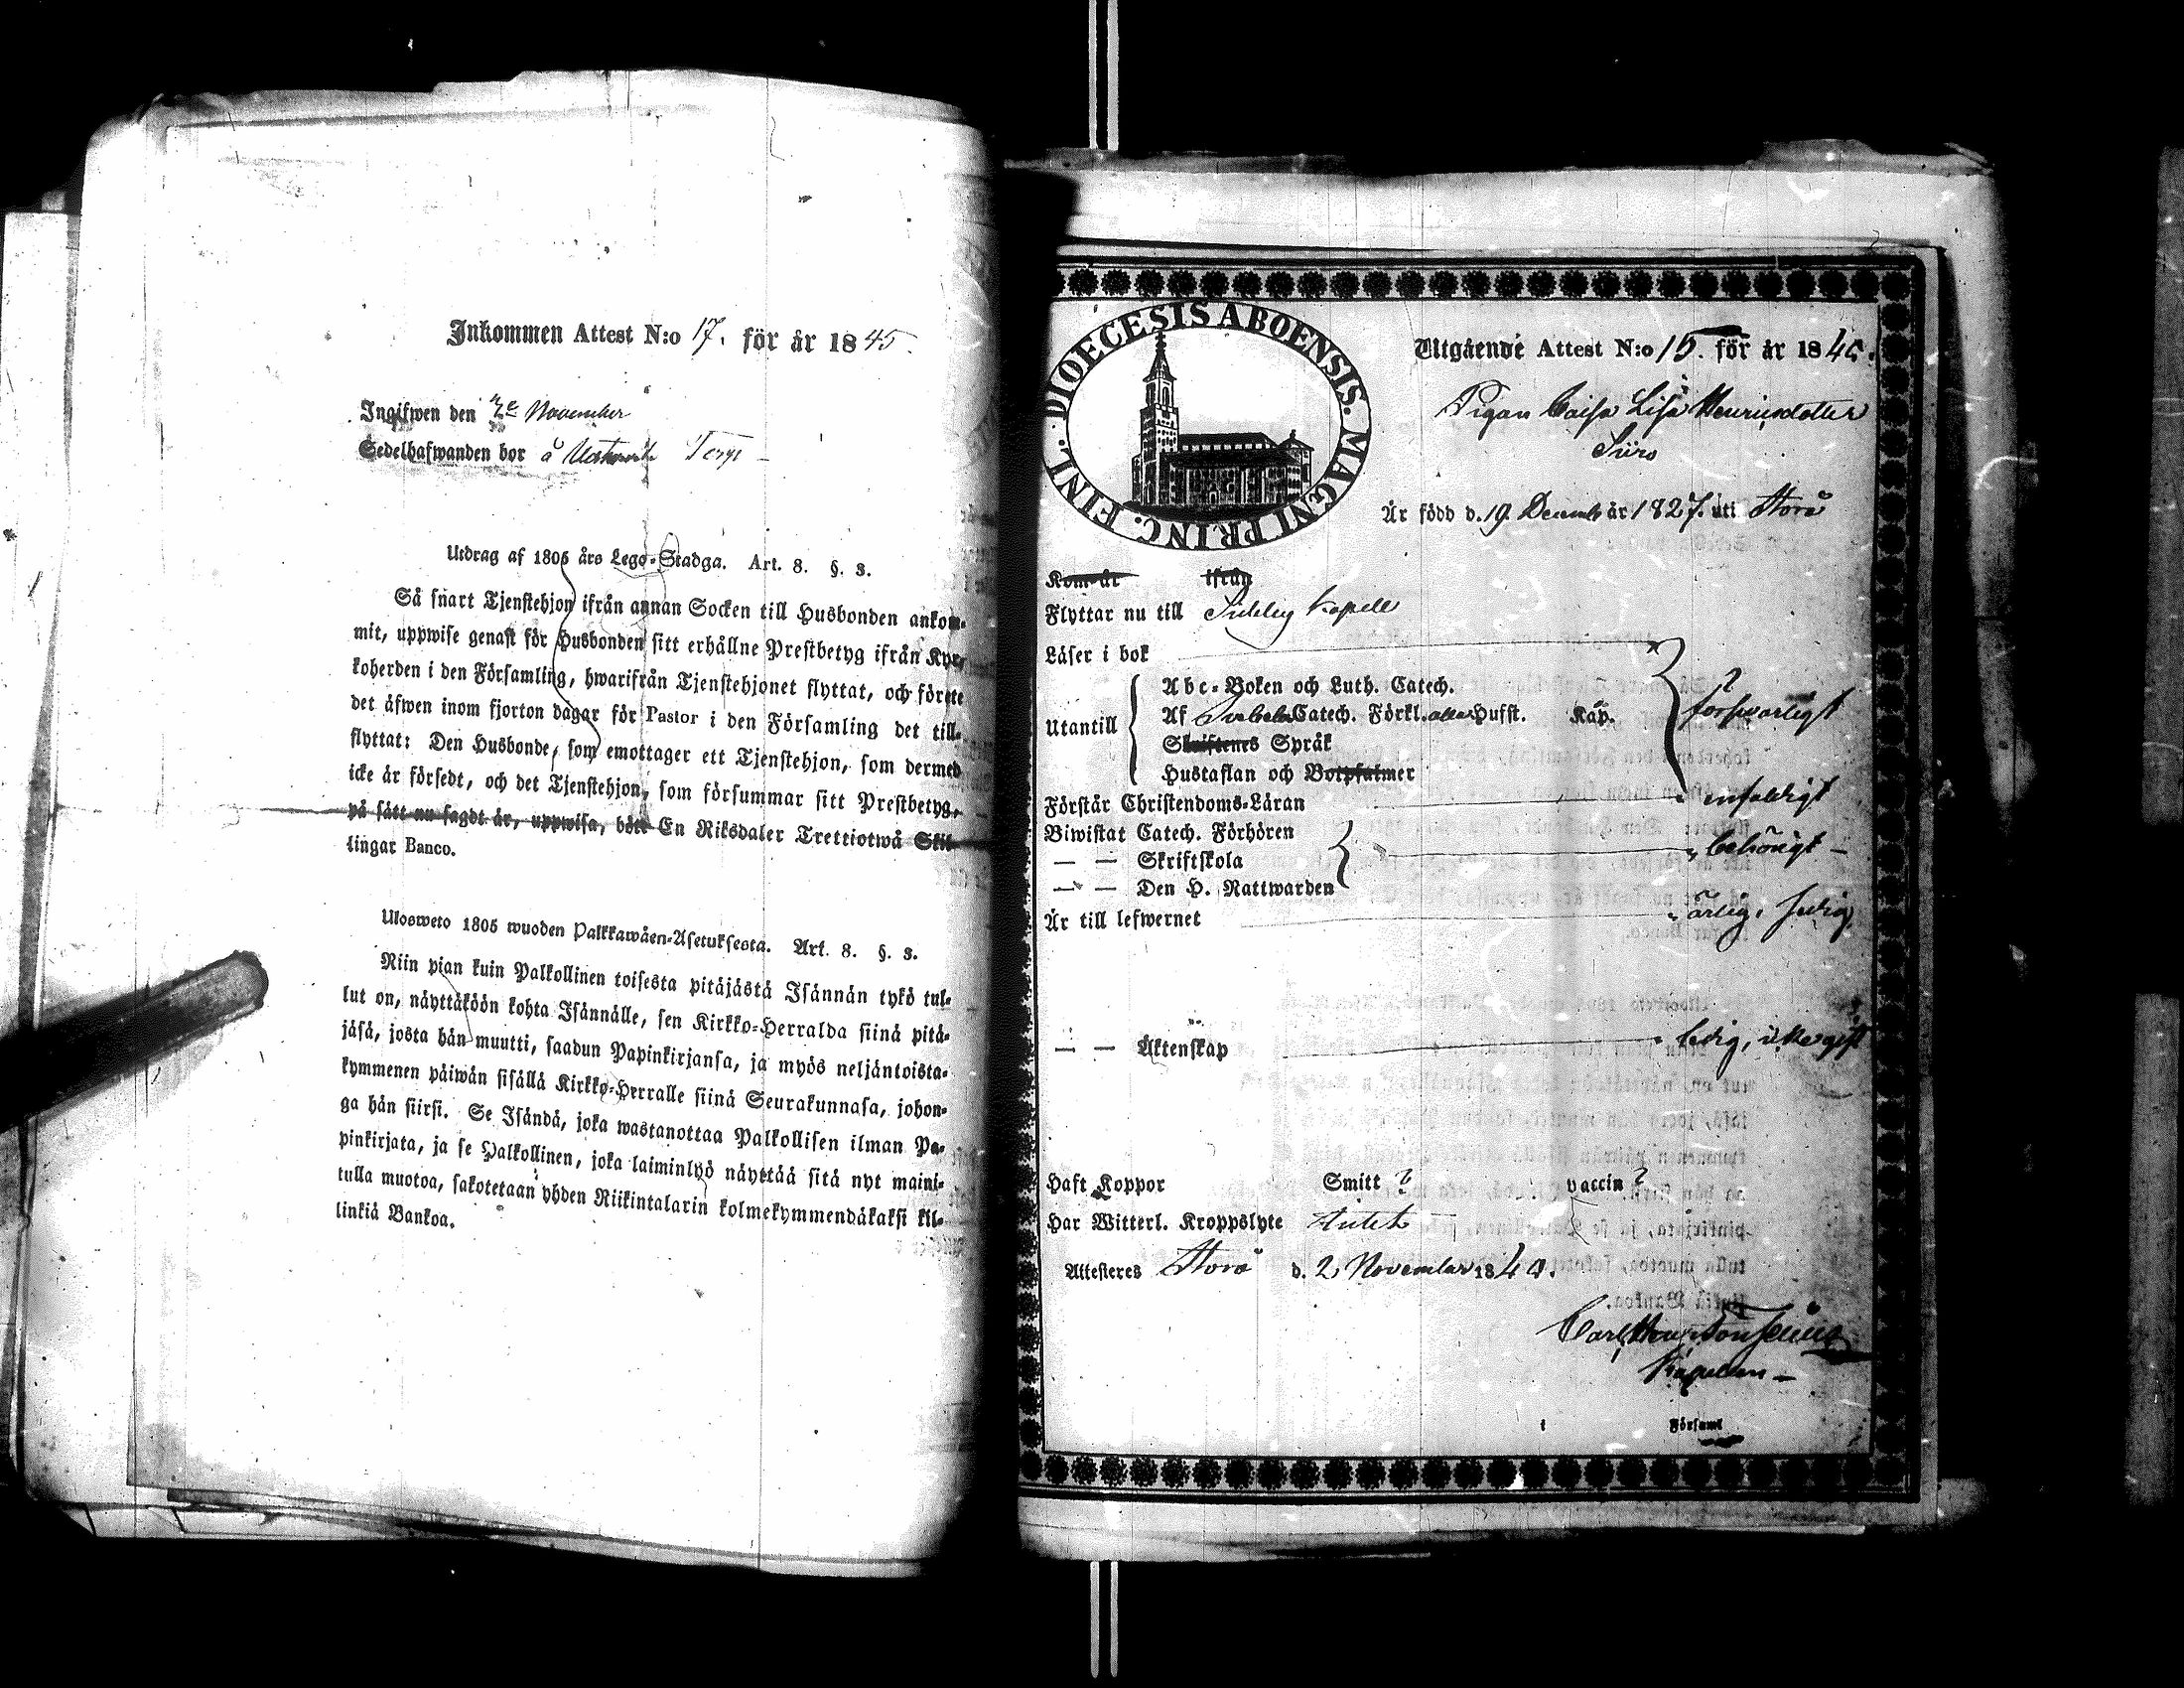 Inkommen Attest N:o 17. för år 1845.
Ingifwen den 7e November
Sedelhafwanden bor å Torp
Utdrag af 1805 års Lego-Stadga. Art. 8. §. 3.
Så snart Tjenstehjon ifrån annan Socken till Husbonden ankom-
mit, uppwise genast för Husbonden sitt erhållne Prestbetyg ifrån Kyr-
koherden i den Församling, hwarifrån Tjenstehjonet flyttat, och förete
det äfwen inom fjorton dagar för Pastor i den Församling det till-
flyttat: Den Husbonde, som emottager ett Tjenstehjon, som dermed
icke är försedt, och det Tjenstehjon, som försummar sitt Prestbetyg,
på sätt nu sagdt är, uppwisa, böte En Riksdaler Trettiotwå Skil-
lingar Banco.
Ulosweto 1805 wuoden Palkkawäen-Asetuksesta. Art. 8. §. 3.
Niin pian kuin Palkollinen toisesta pitäjästä Isännän tykö tul-
lut on, näyttäköön kohta Isännälle, sen Kirkko-Herralda siinä pitä-
jäsä, josta hän muutti, saadun Papinkirjansa, ja myös neljäntoista-
kymmenen päiwän sisällä Kirkko-Herralle siinä Seurakunnasa, johon-
ga hän siirsi. Se Isändä, joka wastanottaa Palkollisen ilman Pa-
pinkirjata, ja se Palkollinen, joka laiminlyö näyttää sitä nyt maini-
tulla muotoa, sakotetaan yhden Riikintalarin kolmekymmendäkaksi kil-
linkiä Bankoa.
DIOECESIS ABOENSIS. MAGNI PRINC. FINL.
Utgående Attest N:o 15. för år 1845.
Pigan Caisa Lisa Henricsdotter
Siiro
Är född d. 19 Decemb år 1827. uti Storå
Kom år ifrån
Flyttar nu till Sideby Kapell
Läser i bok
Utantill
Abc-Boken och Luth. Catech.
Af Svebel. Catech. Förkl. eller Husst. Kap.
Skriftenes Språk
Hustaflan och Botpsalmer
försvarligt
Förstår Christendoms-Läran enfaldigt
Biwistat Catech. Förhören
— — Skriftskola behörigt —
— — Den H. Nattwarden
Är till lefwernet ärlig, sedig
— — Äktenskap ledig, icke gift
Haft Koppor Smitt ? vaccin ?
Har Witterl. Kroppslyte Intet
Attesteres Storå d. 2 November 1845.
Kapellan —
i Församl